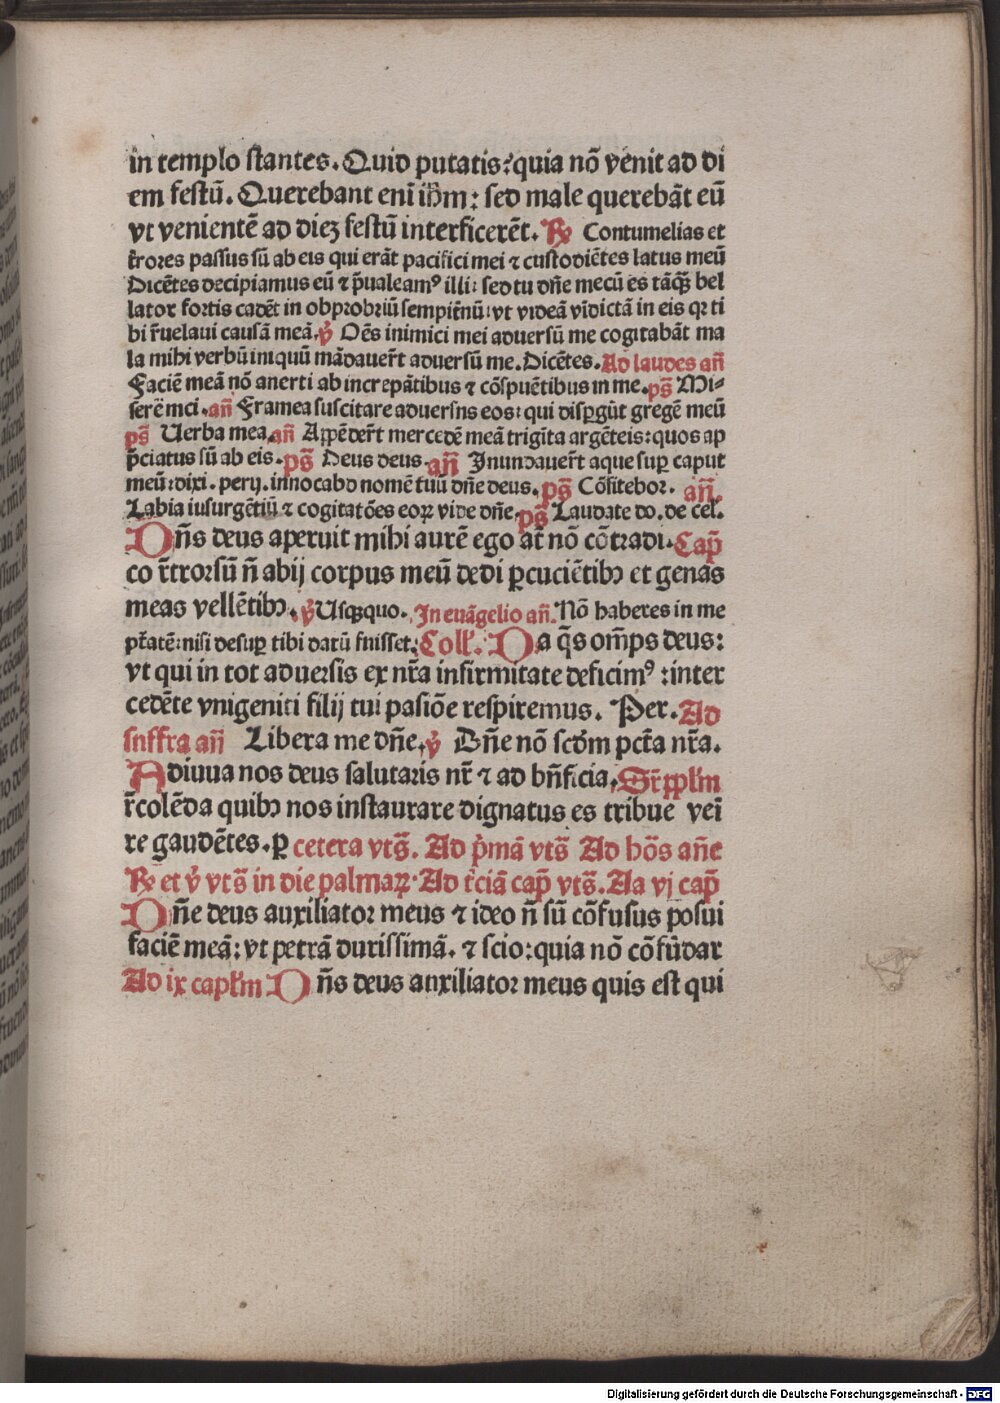 in templo stantes. Quid putatis: quia nō venit ad di
em festū. Querebant eni ihm: sed male querebāt eū
vt venientē ad diez festū interficerēt. ℟ Contumelias et
t̄rores passus sū ab eis qui erāt pacifici mei ⁊ custodiētes latus meū
Dicētes decipiamus eū ⁊ p̄ualeamꝰ illi: sed tu dn̄e mecū es tāqꝫ bel
lator fortis cadēt in obprobriū sempit̄nū: vt videā vidictā in eis qꝛ ti
bi r̄uelaui causā meā. ℣ Oēs inimici mei aduersū me cogitabāt ma
la mihi verbū iniquū mādauer̄t aduersū me. Dicētes. Ad laudes an̄
Faciē meā nō auerti ab increpātibus ⁊ cōspuētibus in me. ps̄ Mi⸗
serē mei. an̄ Framea suscitare aduersns eos: qui disꝑgūt gregē meū
ps̄ Uerba mea. an̄ Appēder̄t mercedē meā trigīta argēteis: quos ap
p̄ciatus sū ab eis. ps̄ Deus deus. an̄ Inundauer̄t aque suꝑ caput
meū: dixi. perij. innocabo nomē tuū dn̄e deus. ps̄ Cōfitebor. an̄.
Labia iusurgētiū ⁊ cogitatōes eoꝝ vide dn̄e. ps̄ Laudate do. de cel.
Dn̄s deus aperuit mihi aurē ego at̄ nō cōtradi. Cap̄
co r̄trorsū n̄ abij corpus meū dedi ꝑcuciētibꝰ et genas
meas vellētibꝰ. ℣ Usqꝫquo. In euāgelio an̄. Nō haberes in me
pt̄atē: nisi desuꝑ tibi datū fnisset. Coll̄. Da q̄s om̄ps deus:
vt qui in tot aduersis ex nr̄a infirmitate deficimꝰ: inter
cedēte vnigeniti filij tui pasiōe respiremus. Per. Ad
snffra an̄ Libera me dn̄e. ℣ Dn̄e nō scdm pct̄a nr̄a.
Adiuua nos deus salutaris nr̄ ⁊ ad bn̄ficia. Sr̄ pplm
r̄colēda quibꝰ nos instaurare dignatus es tribue vei
re gaudētes. ꝑ cetera vts̄. Ad p̄mā vts̄ Ad hōs an̄e
℟ et ℣ vts̄ in die palmaꝝ. Ad t̄ciā cap̄ vts̄. Aa vj cap̄
Dn̄e deus auxiliator meus ⁊ ideo n̄ sū cōfusus posui
faciē meā: vt petrā durissimā. ⁊ scio: quia nō cōfūdar
Ad ix caplm Dn̄s deus anxiliator meus quis est qui
Digitalisierung gefördert durch die Deutsche Forschungsgemeinschaft - DFG